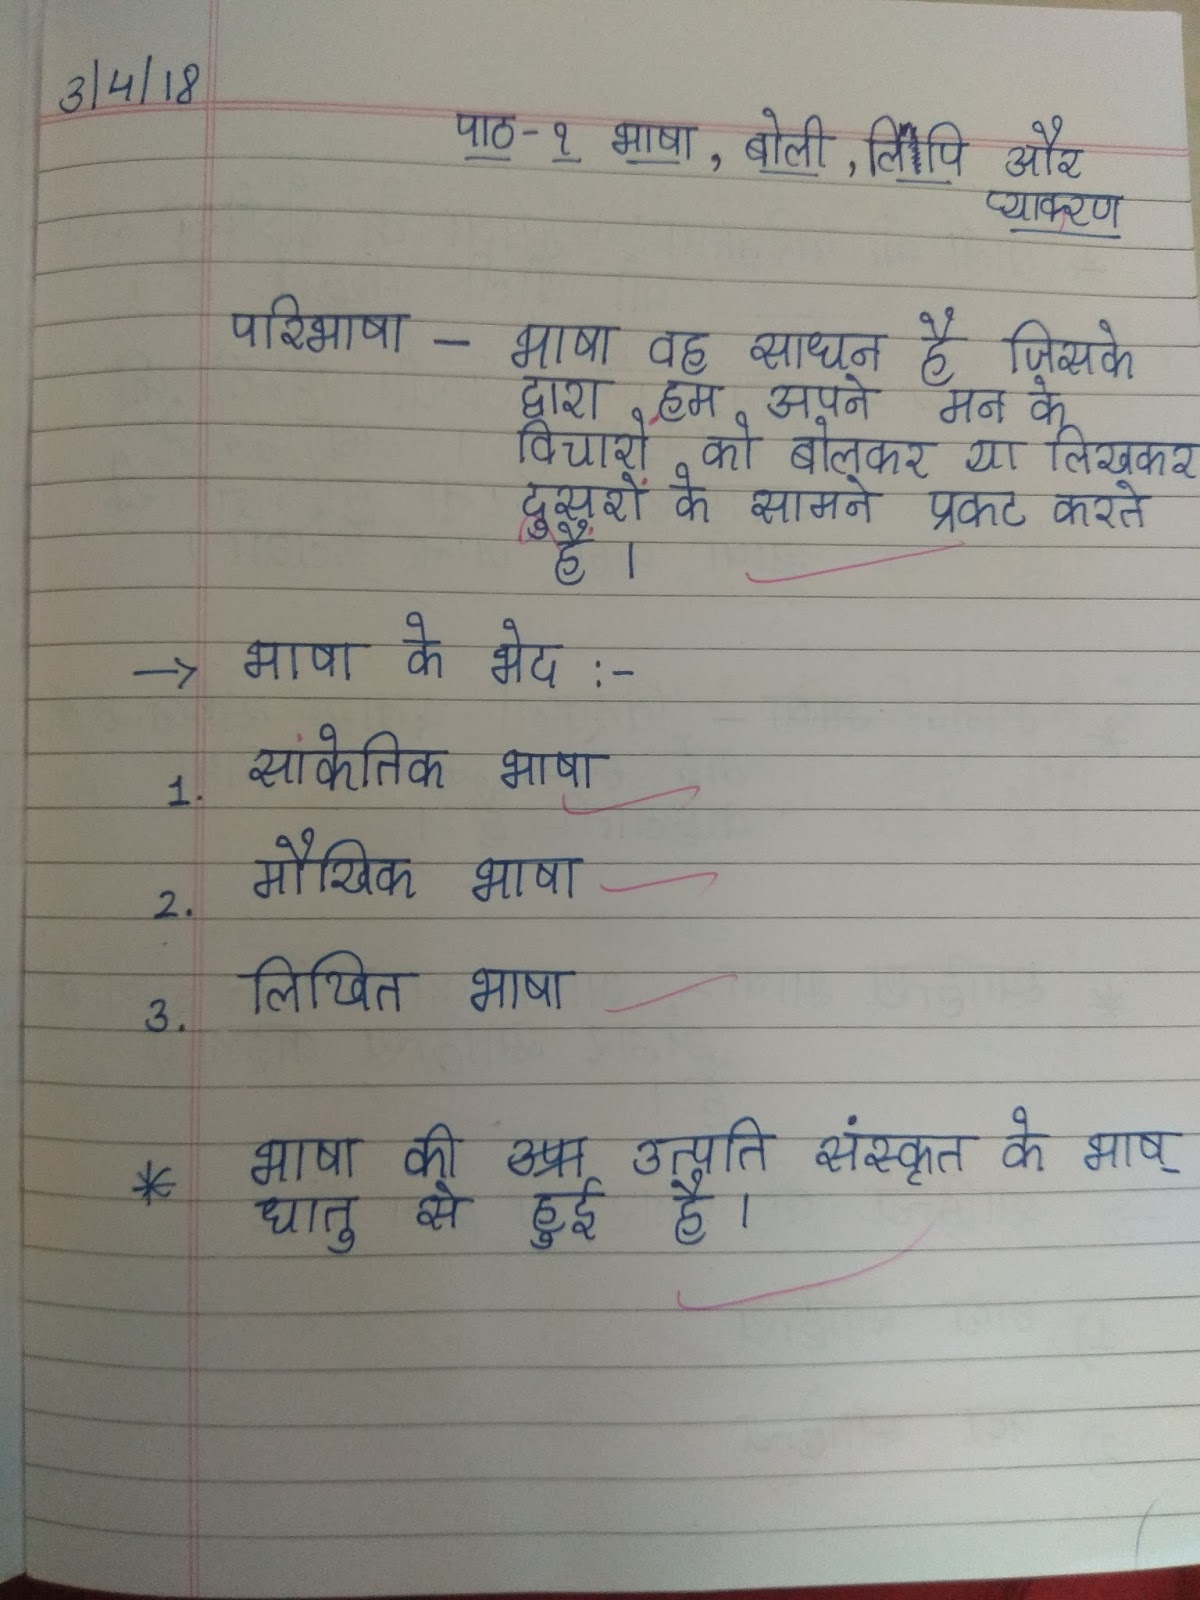 3/4/18
पाठ-१ भाषा, बोली, लिपि और
व्याकरण
परिभाषा — भाषा वह साधन है जिसके
द्वारा हम अपने मन के
विचारों को बोलकर या लिखकर
दुसरों के सामने प्रकट करते
हैं।
→ भाषा के भेद :-
1. सांकेतिक भाषा
2. मौखिक भाषा
3. लिखित भाषा
* भाषा की उत्पति संस्कृत के भाष्
धातु से हुई है।